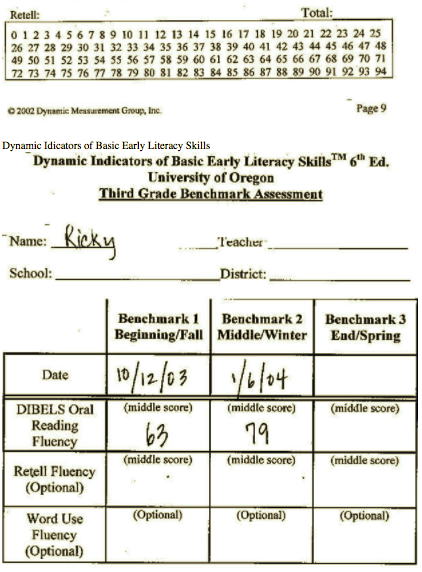 Retell: Total:
0 1 2 3 4 5 6 7 8 9 10 11 12 13 14 15 16 17 18 19 20 21 22 23 24 25
26 27 28 29 30 31 32 33 34 35 36 37 38 39 40 41 42 43 44 45 46 47 48
49 50 51 52 53 54 55 56 57 58 59 60 61 62 63 64 65 66 67 68 69 70 71
72 73 74 75 76 77 78 79 80 81 82 83 84 85 86 87 88 89 90 91 92 93 94
© 2002 Dynamic Measurement Group, Inc. Page 9
Dynamic Idicators of Basic Early Literacy Skills
Dynamic Indicators of Basic Early Literacy Skills™ 6th Ed.
University of Oregon
Third Grade Benchmark Assessment
Name: Ricky Teacher
School: District:
Benchmark 1 Benchmark 2 Benchmark 3
Beginning/Fall Middle/Winter End/Spring
Date 10/12/03 1/6/04
DIBELS Oral (middle score) (middle score) (middle score)
Reading 63 79
Fluency
Retell Fluency (middle score) (middle score) (middle score)
(Optional)
Word Use (Optional) (Optional) (Optional)
Fluency
(Optional)